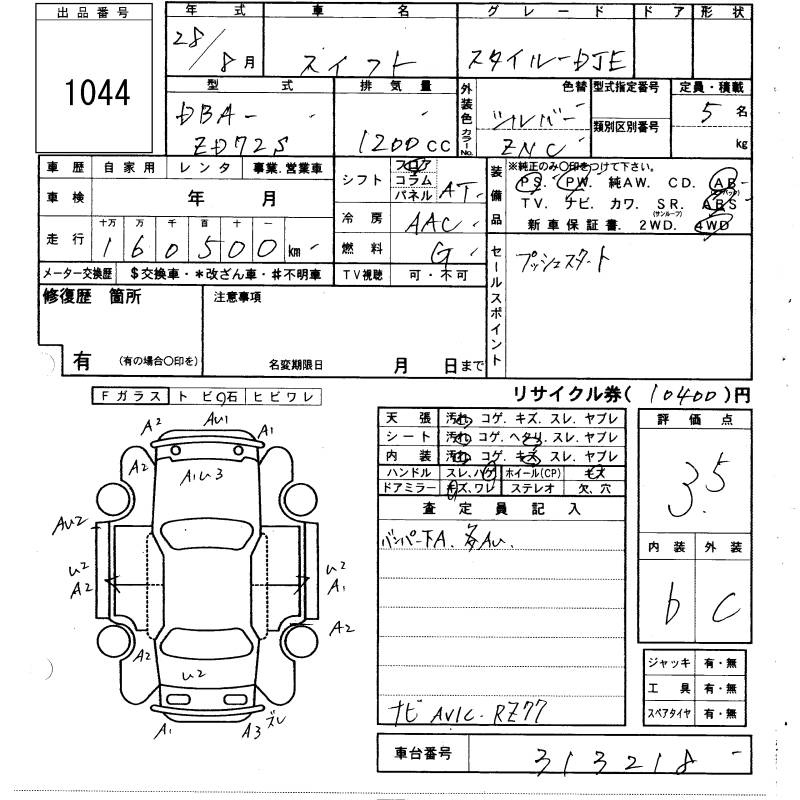 出品番号
1044
年式 車名 グレード ドア 形状
28/8月 スイフト スタイル-DJE
型式 排気量 外装色 色替 カラーNo. 型式指定番号 類別区別番号 定員・積載
DBA-
ZD72S 1200CC シルバー ZNC 5名
kg
車歴 自家用 レンタ 事業.営業車
車検 年 月
走行 十万 万 千 百 十 一
160500km
メーター交換歴 $交換車・*改ざん車・#不明車
シフト フロア コラム パネル AT
冷房 AAC
燃料 G
TV視聴 可・不可
装備品 ※純正のみ〇印をつけて下さい。
PS. PW. 純AW. CD. AB(エアバック)
TV. ナビ. カワ. SR.(サンルーフ) ABS
新車保証書. 2WD. 4WD
セールスポイント
プッシュスタート
修復歴 箇所
有 (有の場合〇印を)
注意事項
名変期限日 月 日まで
リサイクル券(10400)円
Fガラス トビ石 ヒビワレ
A2 AU1 A1
A2 A1U3
AU2
U2 A2
U2 A1
A2
A2 U2
A1 A3 ズレ
天張 汚れ. コゲ. キズ. スレ. ヤブレ
シート 汚れ. コゲ. ヘタリ. スレ. ヤブレ
内装 汚れ. コゲ. キズ. スレ. ヤブレ
ハンドル スレ.ハゲ ホイール(CP) キズ
ドアミラー キズ.ワレ ステレオ 欠、穴
査定員記入
バンパー下A. 各AU.
ナビ AVIC-RZ77
評価点
3.5
内装 外装
b C
ジャッキ 有・無
工具 有・無
スペアタイヤ 有・無
車台番号 313218